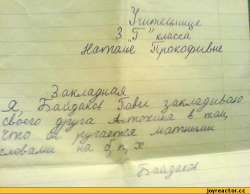 Учительнице
3 "Г" класса
Наталье Прокофьевне
Закладная
Я, Байдаков Павел закладываю
своего друга Антохина в том,
что он ругается матными
словами на б, п, х
Байдаков
joyreactor.cc